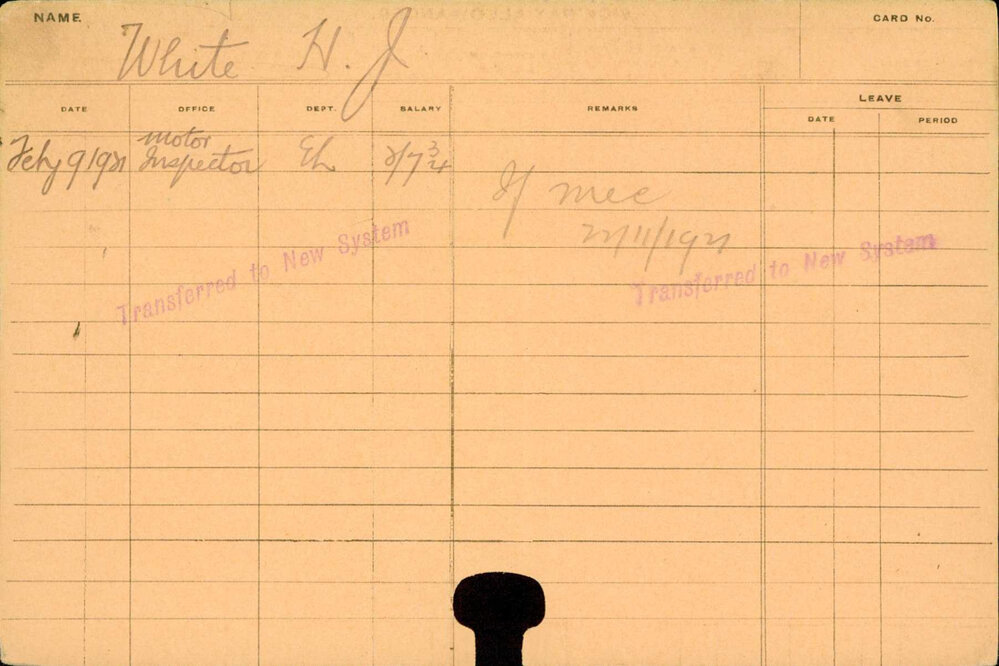 NAME White H. J. CARD No.
DATE OFFICE DEPT. SALARY REMARKS LEAVE
DATE PERIOD
Feby 9 1921 Motor Inspector 2/7 3/4
22/11/1921
Transferred to New System
Transferred to New System